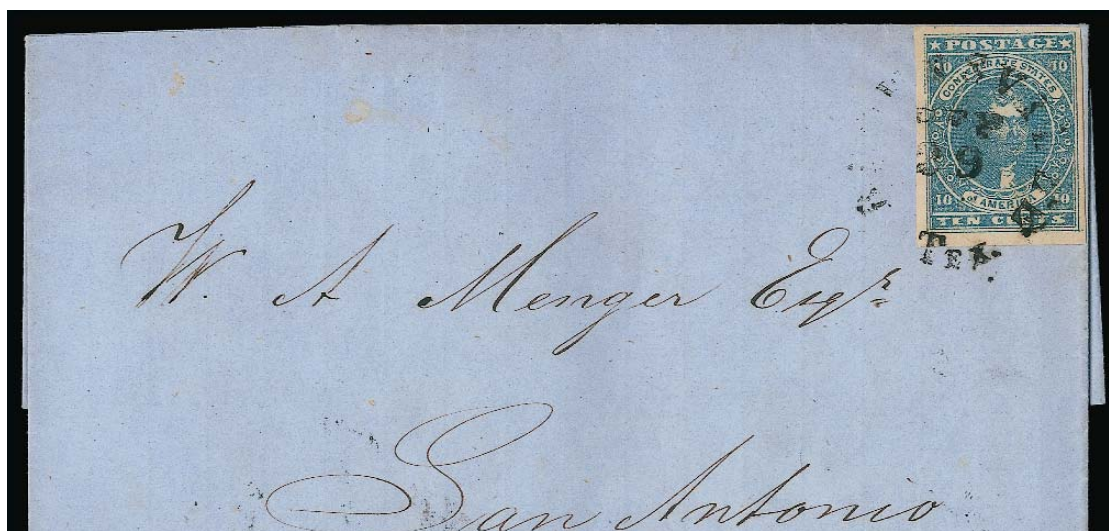 ★POSTAGE★
10 10
CONFEDERATE STATES
OF AMERICA
10 10
TEN CENTS
29
TEX.
W. A Menger Esqr
San Antonio